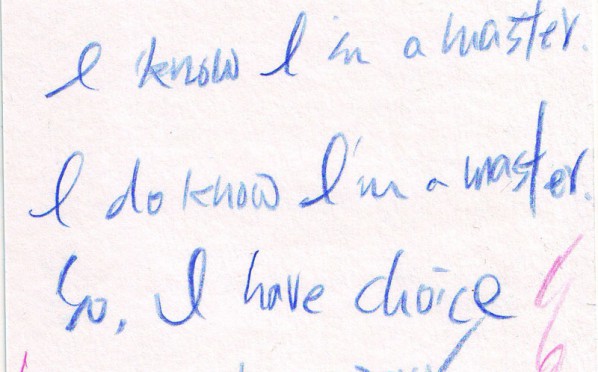 I know I'm a master.
I do know I'm a master.
So, I have choice